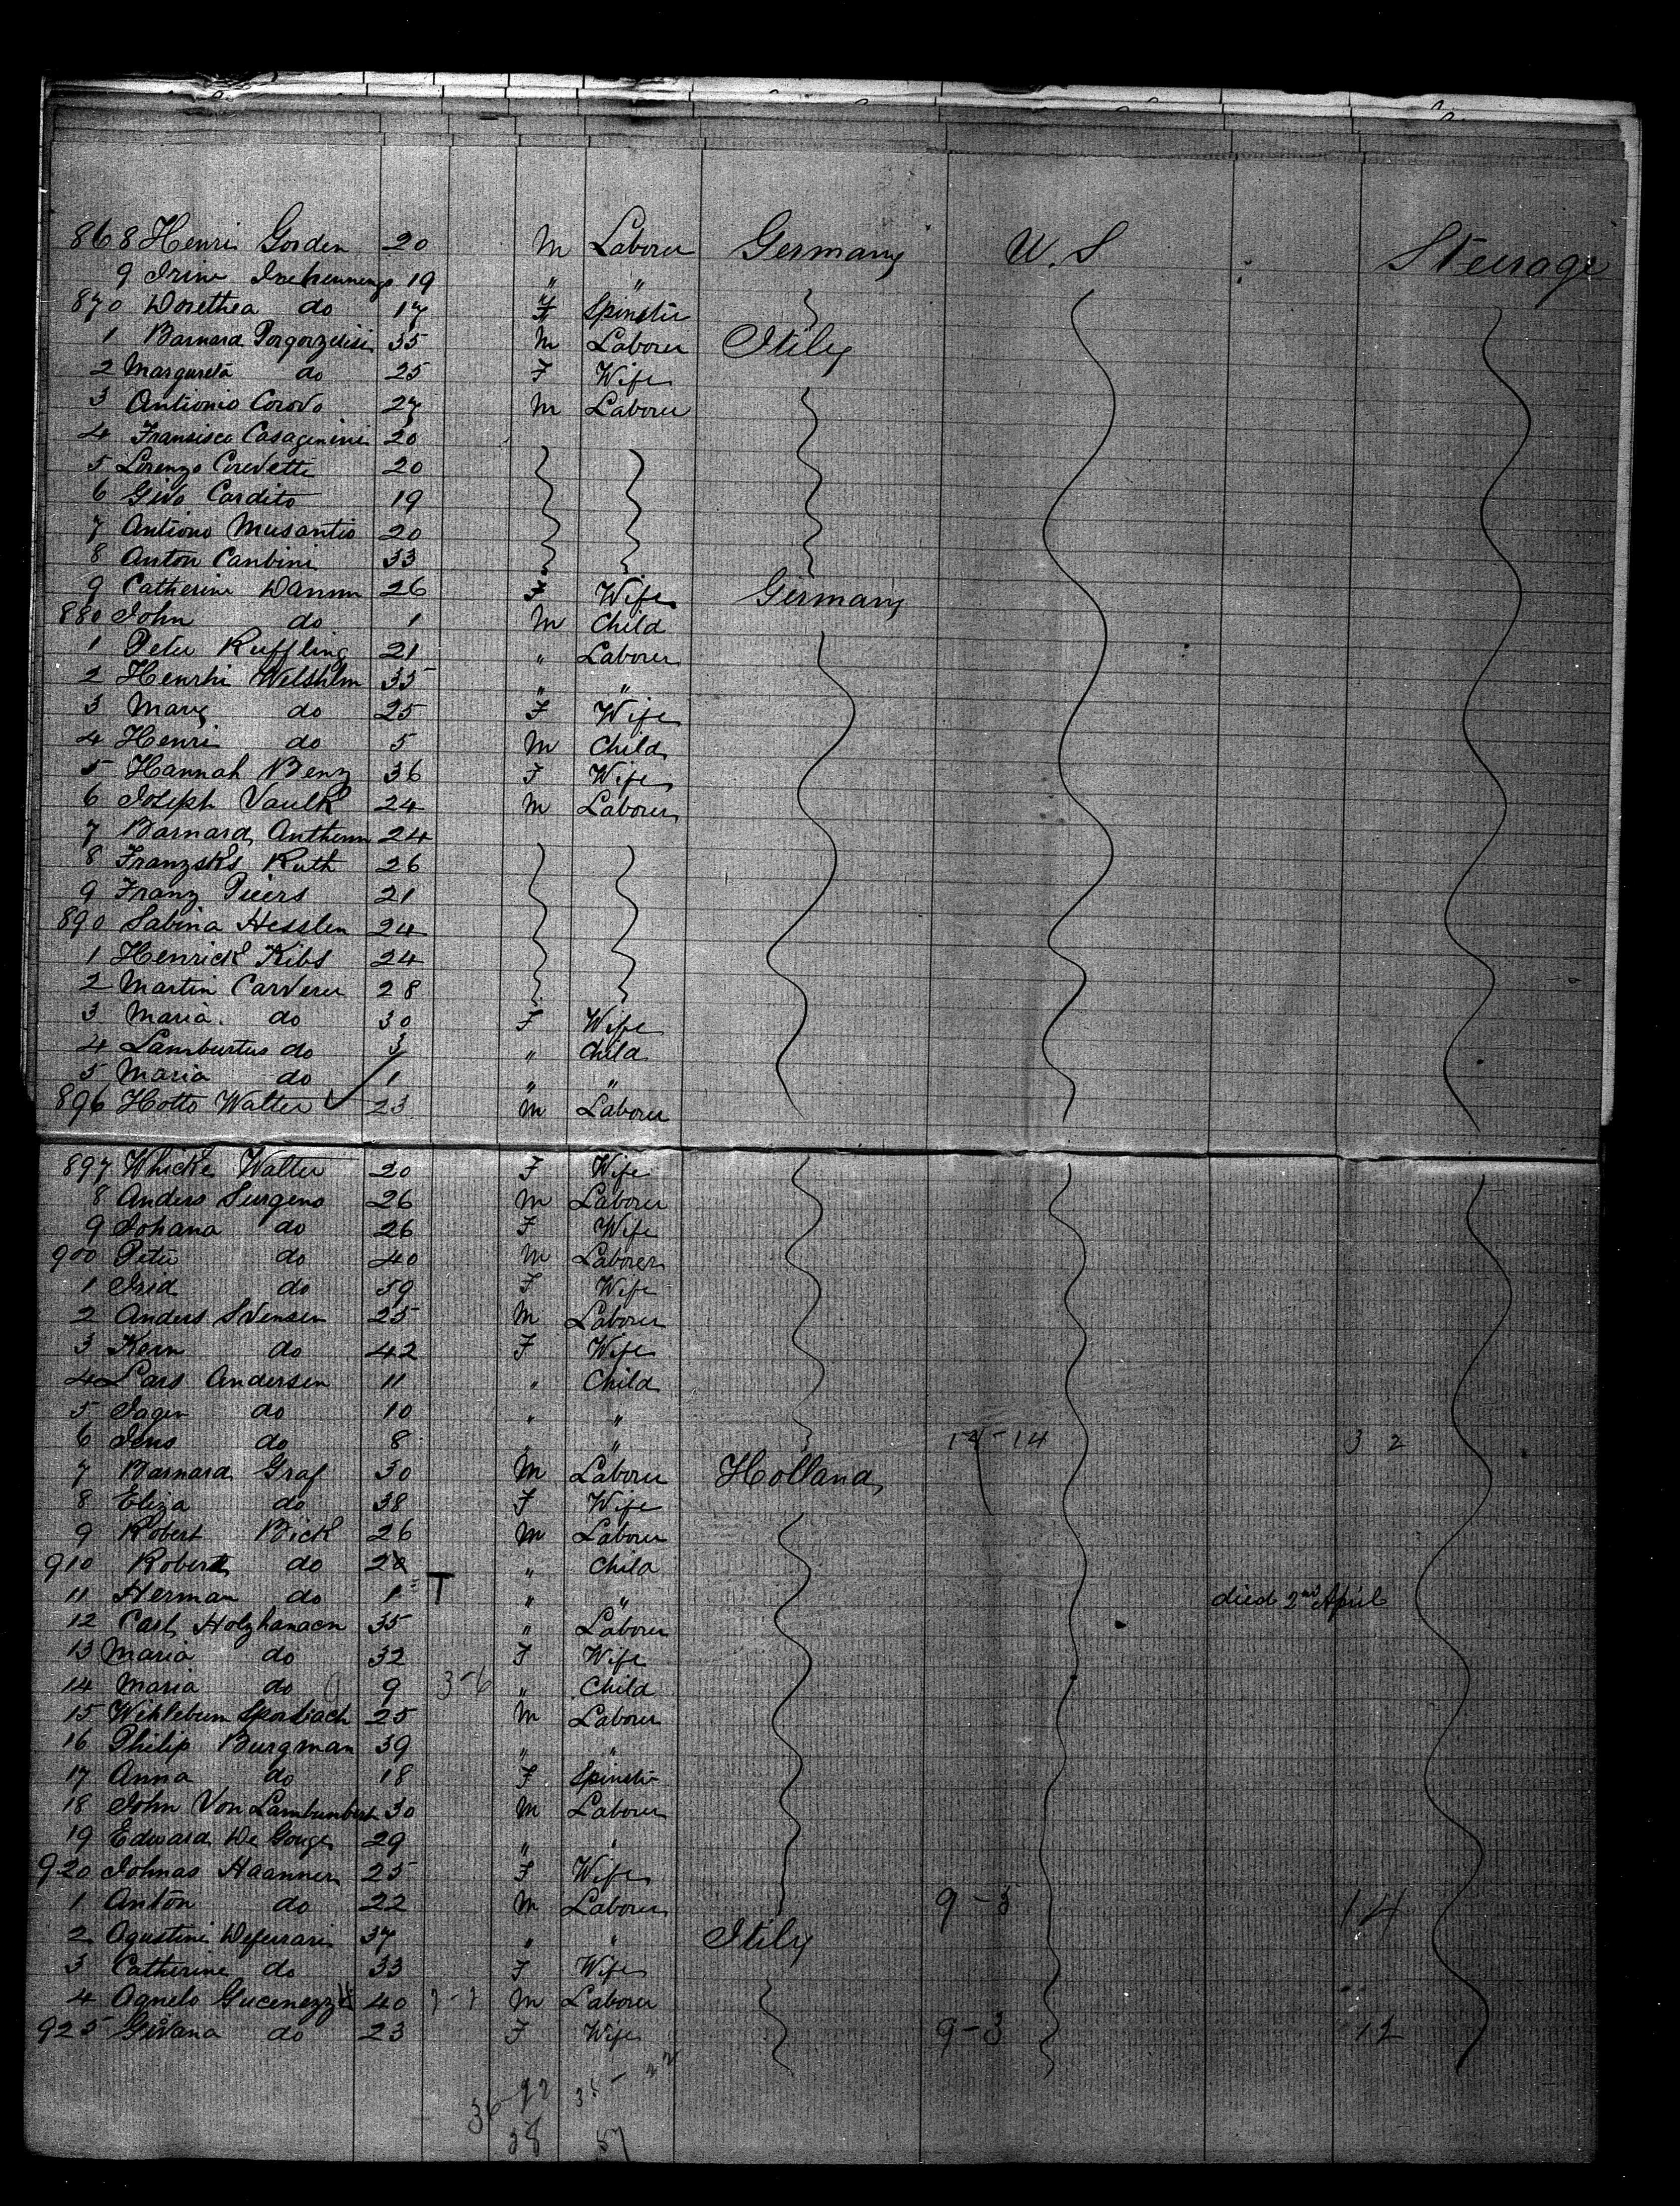 868 Henri Gorden 20 M Laborer Germany U.S Steerage
9 Irine 19 " "
870 Dorethea do 17 F Spinster
1 Barnard 35 M Laborer Itily
2 Margareta do 25 F Wife
3 Antionio Corovo 27 M Laborer
4 Fransisco Casagenini 20
5 Lorenzo Corevetti 20
6 Givo Cardito 19
7 Antiono Musantio 20
8 Anton Canbini 33
9 Catherine Damm 26 F Wife Germany
880 John do 1 M Child
1 Peter Ruffling 21 " Laborer
2 Henrhi Welshlm 35 " "
3 Mary do 25 F Wife
4 Henri do 5 M Child
5 Hannah Benz 36 F Wife
6 Joseph Vaulk 24 M Laborer
7 Barnard Anthenn 24
8 Franzsks Ruth 26
9 Franz Piers 21
890 Sabina Hesslen 24
1 Henrick Kibs 24
2 Martin Carverer 28
3 Maria do 30 F Wife
4 Lamburtus do 3 " Child
5 Maria do 1 " "
896 Hotto Walter 23 M Laborer
897 Whicke Walter 20 F Wife
8 Anders Surgens 26 M Laborer
9 Johana do 26 F Wife
900 Peter do 40 M Laborer
1 Irid do 59 F Wife
2 Anders Svensen 25 M Laborer
3 Kern do 42 F Wife
4 Lars Andersen 11 " Child
5 Jagen do 10 " "
6 Jens do 8 " " 14 3 2
7 Barnard Graf 30 M Laborer Holland
8 Eliza do 38 F Wife
9 Robert Bick 26 M Laborer
910 Robert do 2 " Child
11 Herman do 1 T " " died 2nd April
12 Carl Holzhanaen 35 " Laborer
13 Maria do 32 F Wife
14 Maria do 9 3-6 " Child
15 Wihlebum Sporbach 25 M Laborer
16 Philip Burgman 39 " "
17 Anna do 18 F Spinster
18 John Von Lambumbert 30 M Laborer
19 Edward De Gouge 29 " "
920 Johnas Haanner 25 F Wife
1 Anton do 22 M Laborer 9-5 14
2 Agustini Deferrari 37 " " Itily
3 Catherine do 33 F Wife
4 Agnelo 40 M Laborer
925 Givana do 23 F Wife 9-3 12